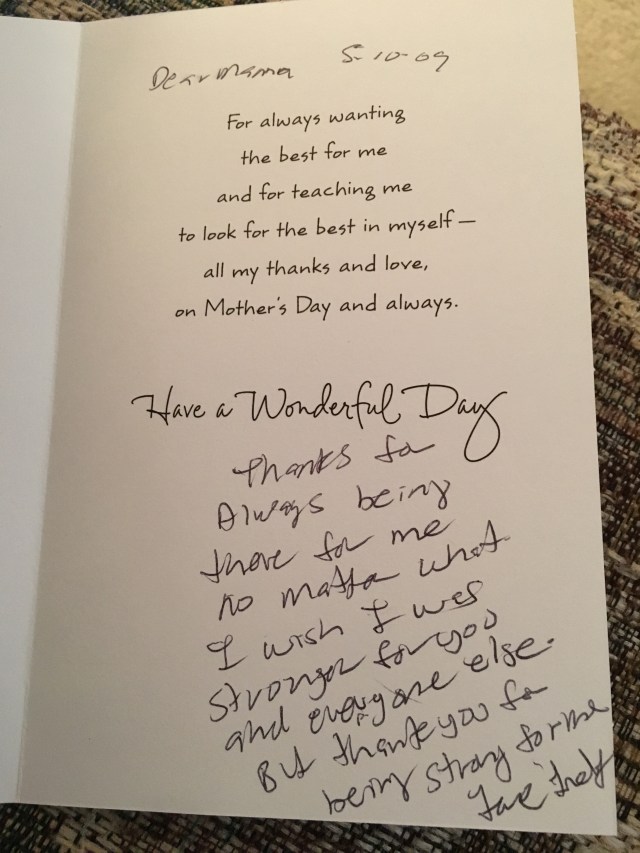 Dear Mama 5-10-09
For always wanting
the best for me
and for teaching me
to look for the best in myself—
all my thanks and love,
on Mother's Day and always.
Have a Wonderful Day
Thanks for
Always being
there for me
no matter what
I wish I was
stronger for you
and everyone else.
But thank you for
being strong for me